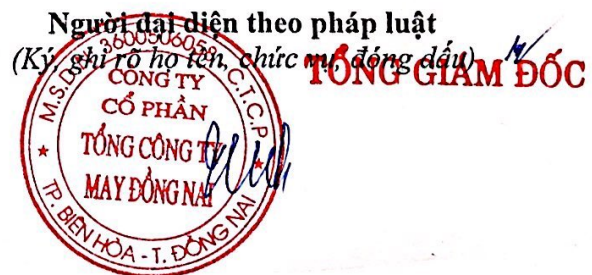 Người đại diện theo pháp luật
(Ký, ghi rõ họ tên, chức vụ, đóng dấu)
TỔNG GIÁM ĐỐC
M.S.D.N: 3600506058 - C.T.C.P
CÔNG TY
CỔ PHẦN
TỔNG CÔNG TY
MAY ĐỒNG NAI
TP. BIÊN HÒA - T. ĐỒNG NAI